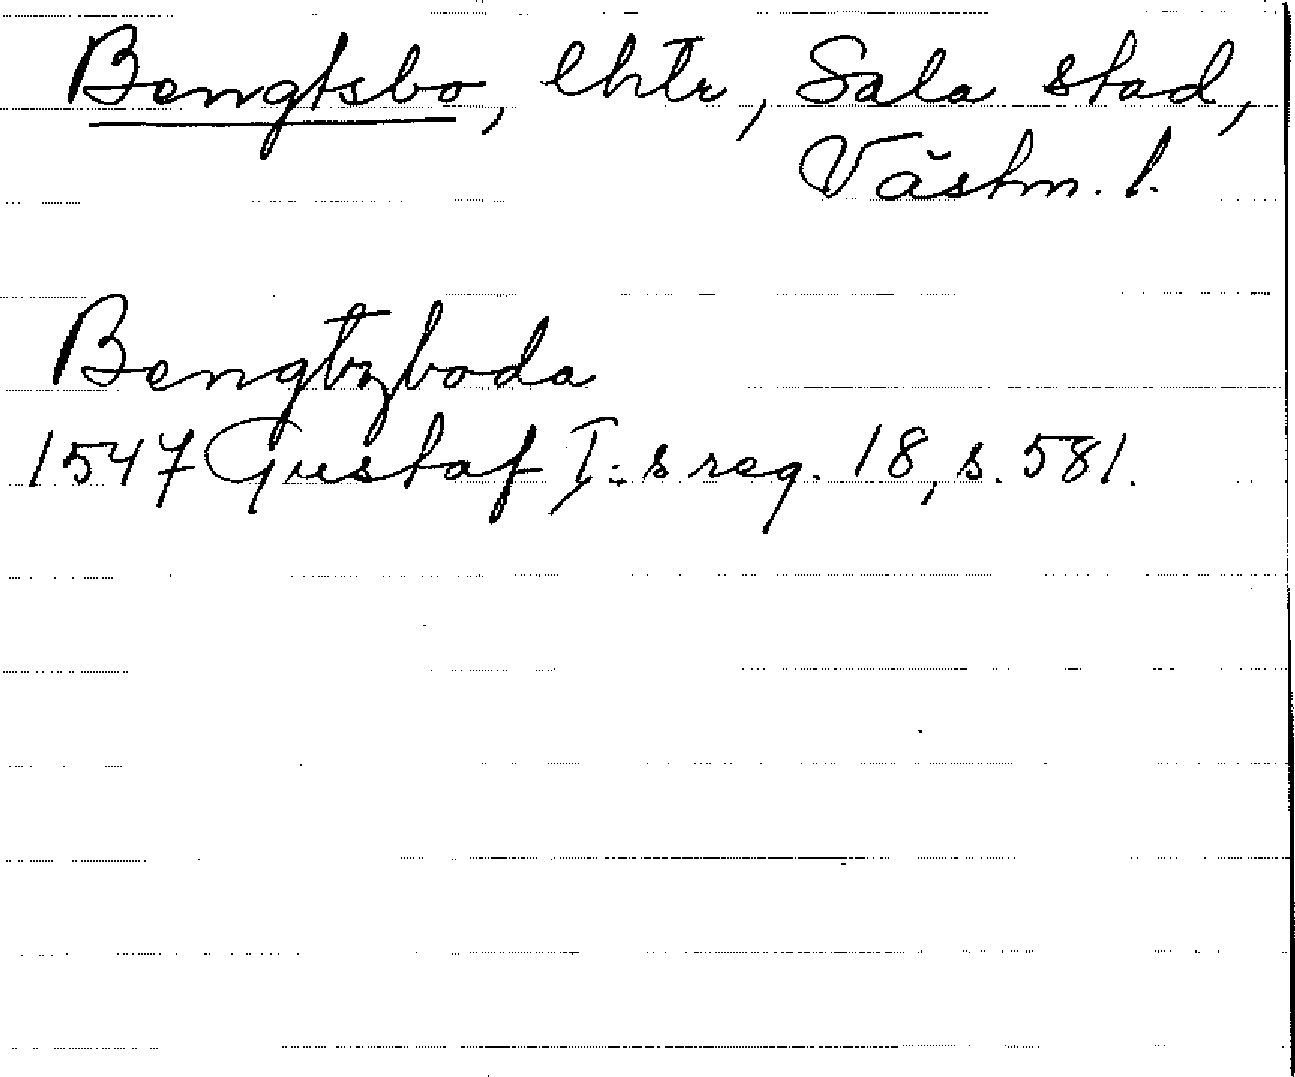 Bengtsbo, lhtr, Sala stad,
Västm. l.
Bengtzboda
1547 Gustaf I:s reg. 18, s. 581.